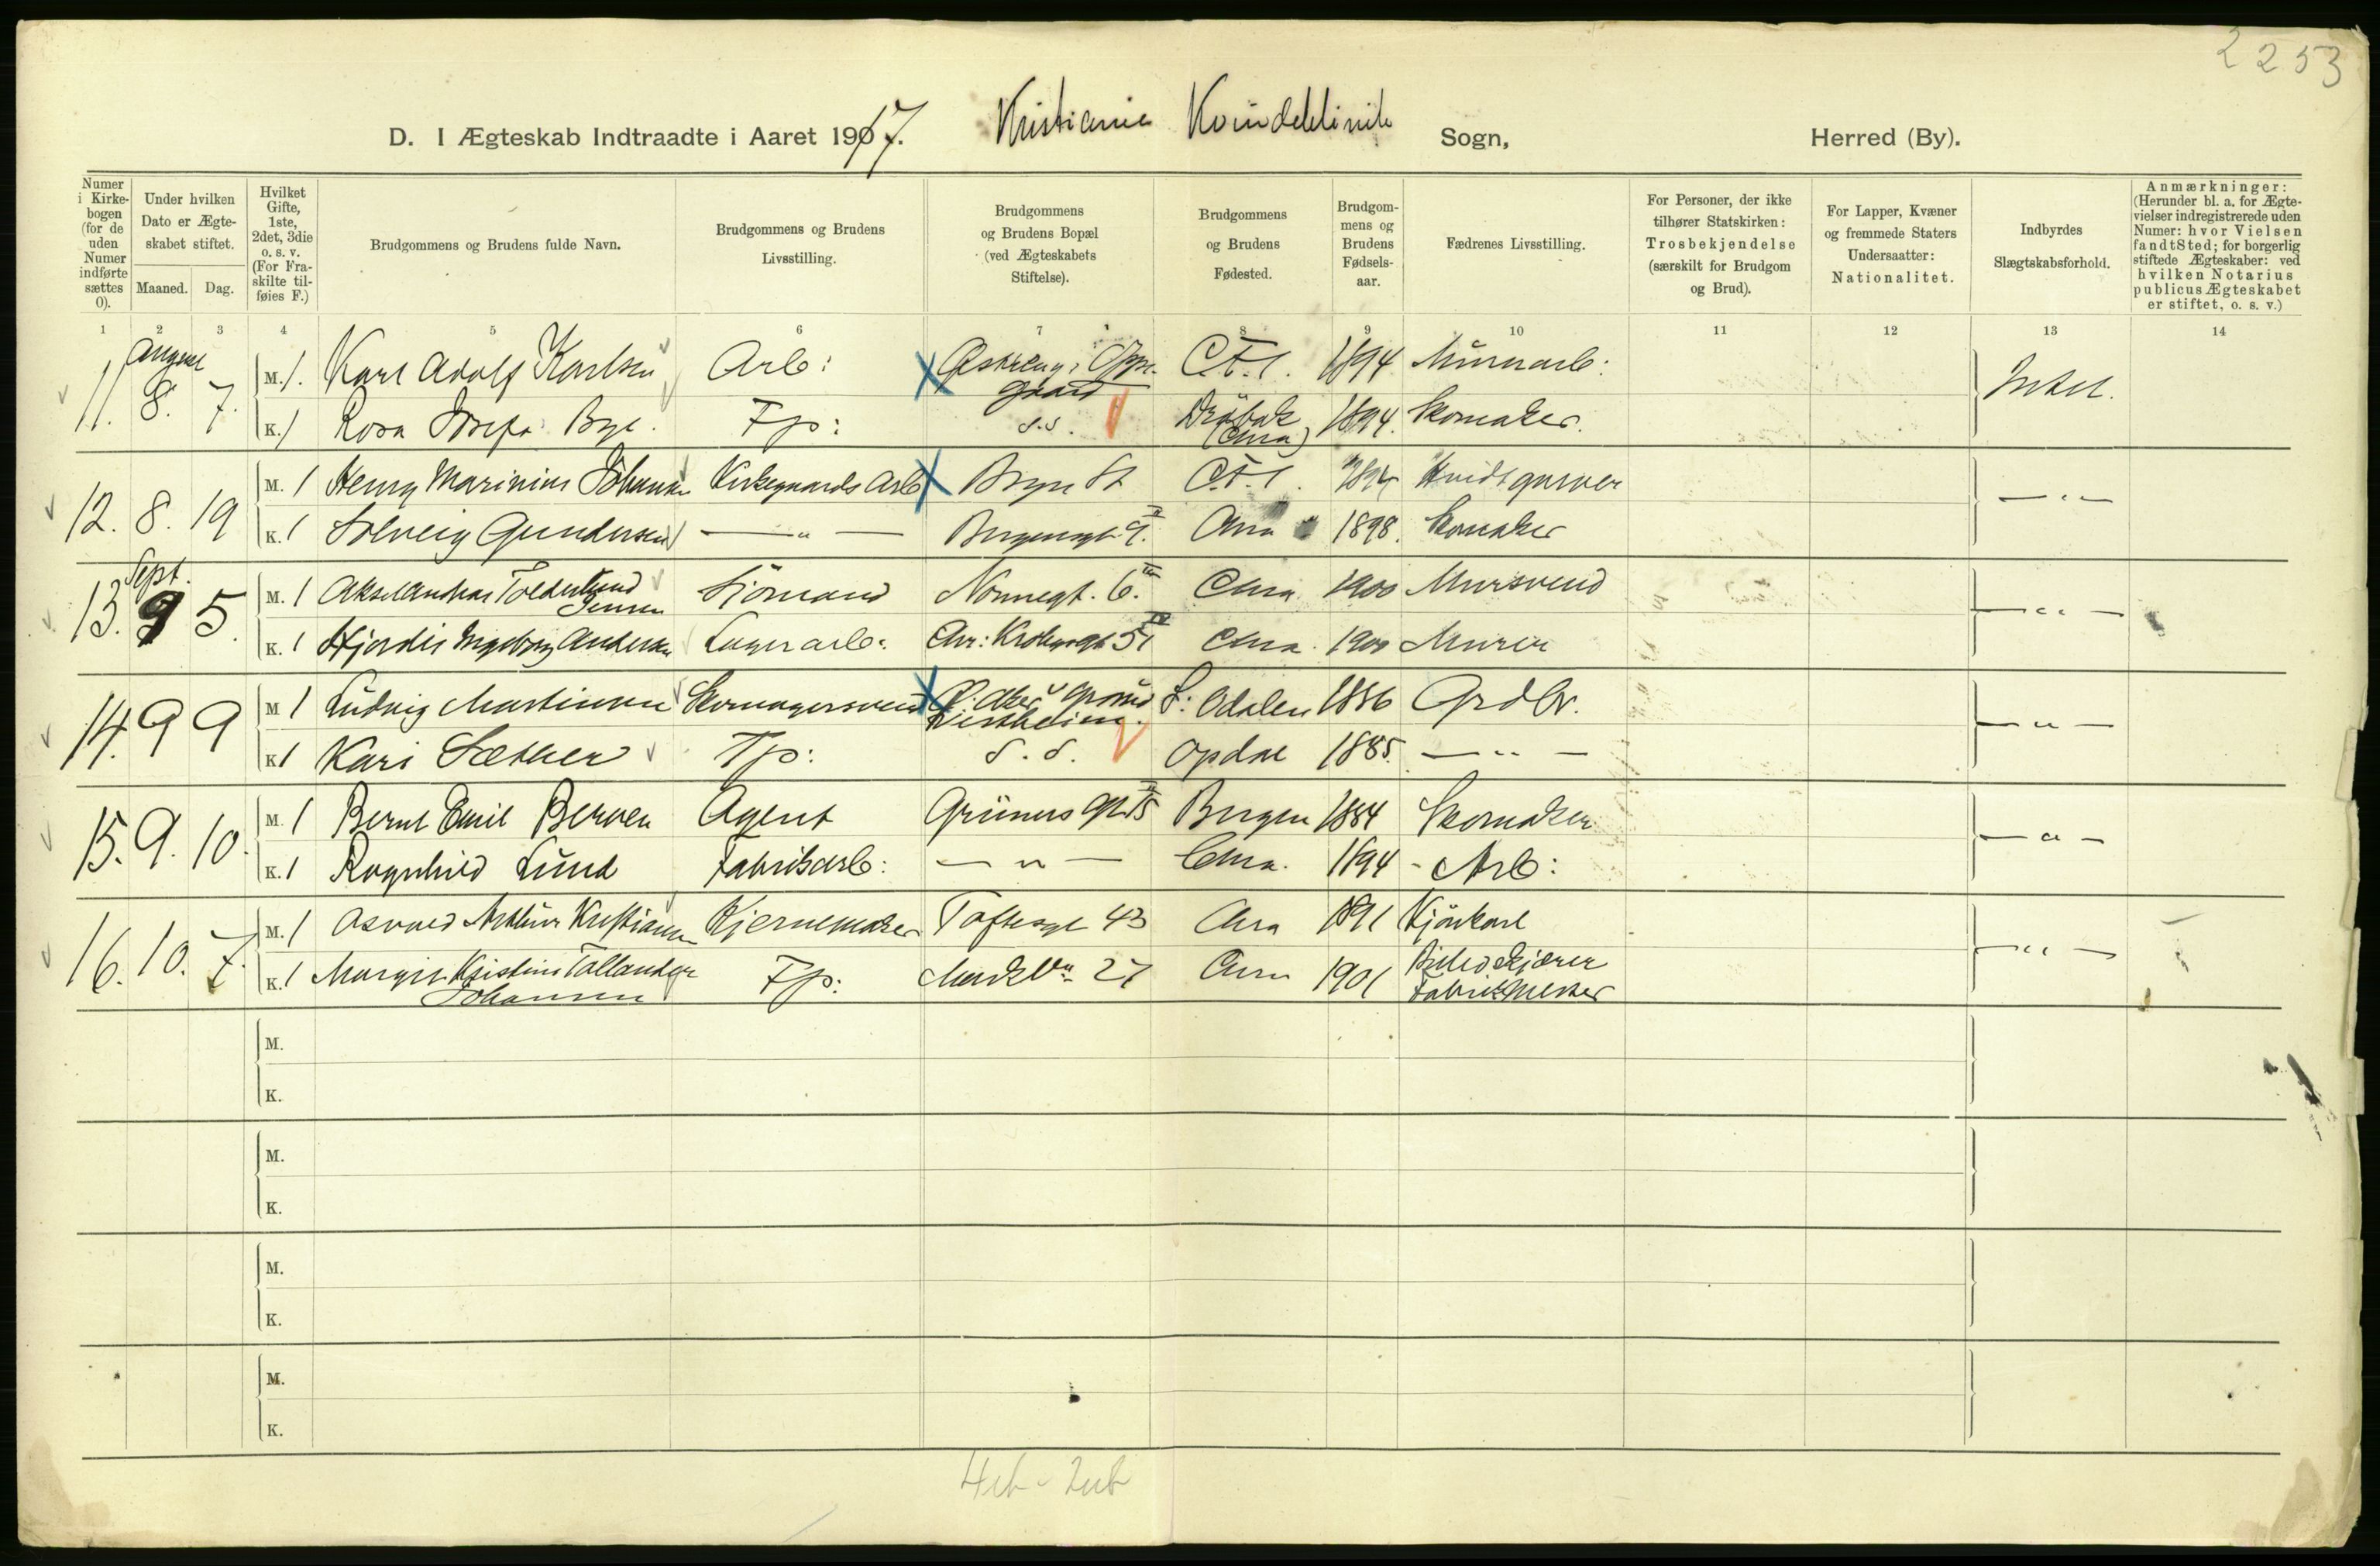 2253
D. I Ægteskab Indtraadte i Aaret 1917. Kristiania Kvindeklinik Sogn, Herred (By).
Numer i Kirkebogen (for de uden Numer indførte sættes 0).
Under hvilken Dato er Ægteskabet stiftet.
Maaned. Dag.
Hvilket Gifte, 1ste, 2det, 3die o. s. v. (For Fraskilte tilføies F.)
Brudgommens og Brudens fulde Navn.
Brudgommens og Brudens Livsstilling.
Brudgommens og Brudens Bopæl (ved Ægteskabets Stiftelse).
Brudgommens og Brudens Fødested.
Brudgommens og Brudens Fødselsaar.
Fædrenes Livsstilling.
For Personer, der ikke tilhører Statskirken: Trosbekjendelse (særskilt for Brudgom og Brud).
For Lapper, Kvæner og fremmede Staters Undersaatter: Nationalitet.
Indbyrdes Slægtskabsforhold.
Anmærkninger: (Herunder bl. a. for Ægtevielser indregistrerede uden Numer: hvor Vielsen fandt Sted; for borgerlig stiftede Ægteskaber: ved hvilken Notarius publicus Ægteskabet er stiftet, o. s. v.)
1 2 3 4 5 6 7 8 9 10 11 12 13 14
August
11. 8. 7. M. 1. Karl Adolf Karlsen Arb: gaard 1894 Murarb: Intet.
K. 1 Rosa Josefa Bye. Fp: s.s. Drøbak (Chra) 1894. Skomaker.
12. 8. 19 M. 1 Henry Marinius Johansen Kirkegaards Arb Bryn St 1894 Hvidtgarver — " —
K. 1 Solveig Gundersen — " — Bergensgt. 9. II Chra 1898. Skomaker
Sept.
13. 9 5. M. 1 Aksel Andreas Tolderlund Jensen Sjömand Nonnegt. 6. III Chra 1900 Mursvend — " —
K. 1 Hjordis Ingeborg Andersen Lagerarb: Chr: Krohgsgt 51 IV Chra. 1900 Murer
14. 9 9 M 1 Ludvig Martinsen Skomagersvend S: Odalen 1886 Grdbr. — " —
K 1 Kari Sæther Fp: s. s. Opdal 1885. — " —
15. 9. 10. M. 1 Bernt Emil Berven Agent Grüners gt 15 II Bergen 1884 Skomaker — " —
K. 1 Ragnhild Lund Fabrikarb: — " — Chra. 1894 - Arb:
16. 10. 7. M. 1 Asvald Arthur Kristiansen Kjernemaker Toftesgt 43 Chra 1891 Kjörkarl — " —
K. 1 Margit Kristine Tollander Johansen Fp: Markvn 27 Chra 1901 Billedskjærer Fabrikmester
M.
K.
M.
K.
M.
K.
M.
K.